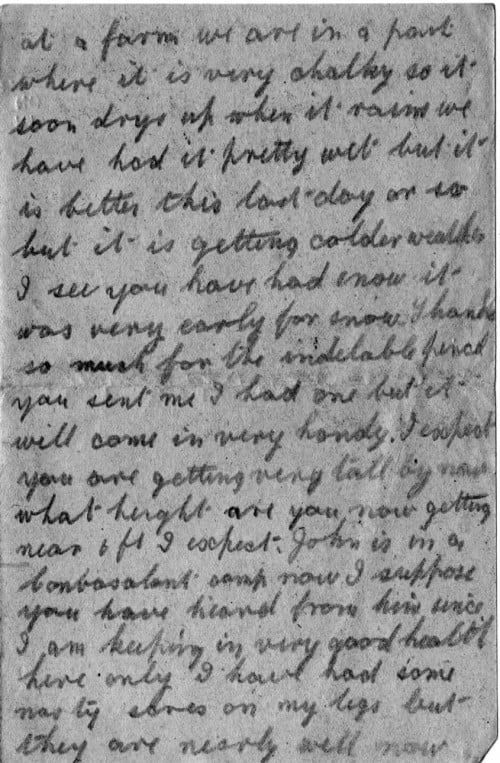 at a farm we are in a part
where it is very chalky so it
soon drys up when it rains we
have had it pretty wet but it
is better this last day or so
but it is getting colder weather
I see you have had snow it
was very early for snow. Thanks
so much for the indelable pencil
you sent me I had one but it
will come in very handy. I expect
you are getting very tall by now
what height are you now getting
near 6 ft I expect. John is in a
Conbasalent camp now I suppose
you have heard from him since
I am keeping in very good health
here only I have had some
nasty sores on my legs but
they are nearly well now